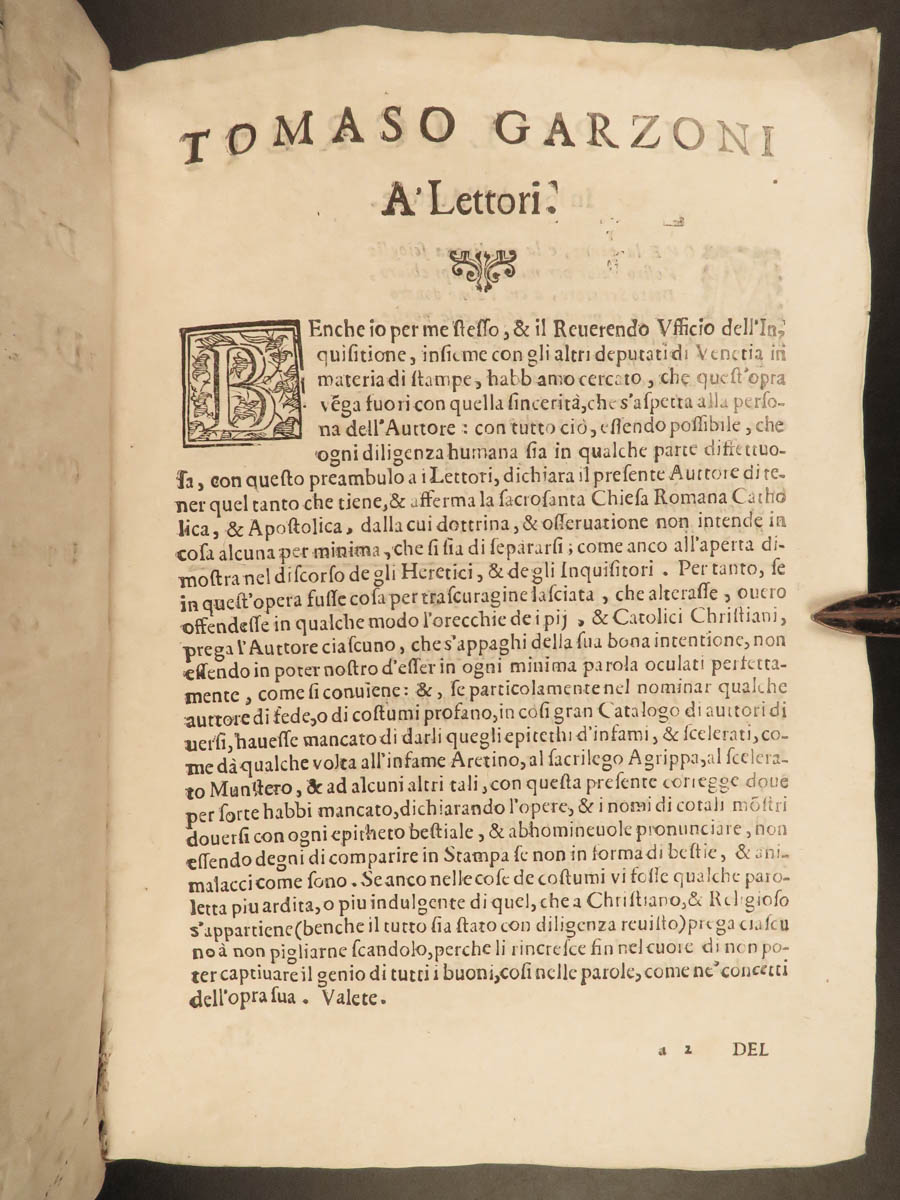 TOMASO GARZONI
A' Lettori.
BEnche io per me ſteſſo, & il Reuerendo Vfficio dell'In-
quiſitione, inſieme con gli altri deputati di Venetia in
materia di ſtampe, habb amo cercato, che queſt'opra
vẽga fuori con quella ſincerità, che s'aſpetta alla perſo-
na dell'Auttore: con tutto ciò, eſſendo poſſibile, che
ogni diligenza humana ſia in qualche parte diffettuo-
ſa, con queſto preambulo a i Lettori, dichiara il preſente Auttore di te-
ner quel tanto che tiene, & afferma la ſacroſanta Chieſa Romana Catho
lica, & Apoſtolica, dalla cui dottrina, & oſſeruatione non intende in
coſa alcuna per minima, che ſi ſia di ſepararſi; come anco all'aperta di-
moſtra nel diſcorſo de gli Heretici, & de gli Inquiſitori. Per tanto, ſe
in queſt'opera fuſſe coſa per traſcuragine laſciata, che alteraſſe, ouero
offendeſſe in qualche modo l'orecchie de i pij, & Catolici Chriſtiani,
prega l'Auttore ciaſcuno, che s'appaghi della ſua bona intentione, non
eſſendo in poter noſtro d'eſſer in ogni minima parola oculati perfetta-
mente, come ſi conuiene: &, ſe particolamente nel nominar qualche
auttore di fede, o di coſtumi profano, in coſi gran Catalogo di auttori di
uerſi, haueſſe mancato di darli quegli epitethi d'infami, & ſcelerati, co-
me dà qualche volta all'infame Aretino, al ſacrilego Agrippa, al ſcelera-
to Munſtero, & ad alcuni altri tali, con queſta preſente corregge doue
per ſorte habbi mancato, dichiarando l'opere, & i nomi di cotali mõſtri
douerſi con ogni epitheto beſtiale, & abhomineuole pronunciare, non
eſſendo degni di comparire in Stampa ſe non in forma di beſtie, & ani-
malacci come ſono. Se anco nelle coſe de coſtumi vi foſſe qualche paro-
letta piu ardita, o piu indulgente di quel, che a Chriſtiano, & Religioſo
s'appartiene (benche il tutto ſia ſtato con diligenza reuiſto) prega ciaſcu
no à non pigliarne ſcandolo, perche li rincreſce fin nel cuore di non po-
ter captiuare il genio di tutti i buoni, coſi nelle parole, come ne' concetti
dell'opra ſua. Valete.
a 2 DEL